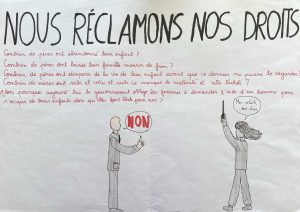 NOUS RÉCLAMONS NOS DROITS
Combien de pères ont abandonné leur enfant ?
Combien de pères ont laissé leur famille mourir de faim ?
Combien de pères ont disparu de la vie de leur enfant avant que ce dernier ne puisse le regarder
Combien de mères ont subi et vécu et subi ce manque de maturité et cette lâcheté ?
Alors pourquoi aujourd'hui le gouvernement oblige les femmes à demander l'aide d'un homme pour
s'occuper de leurs enfants alors qu'elles font tout pour eux ?
NON
Mes enfants,
mes